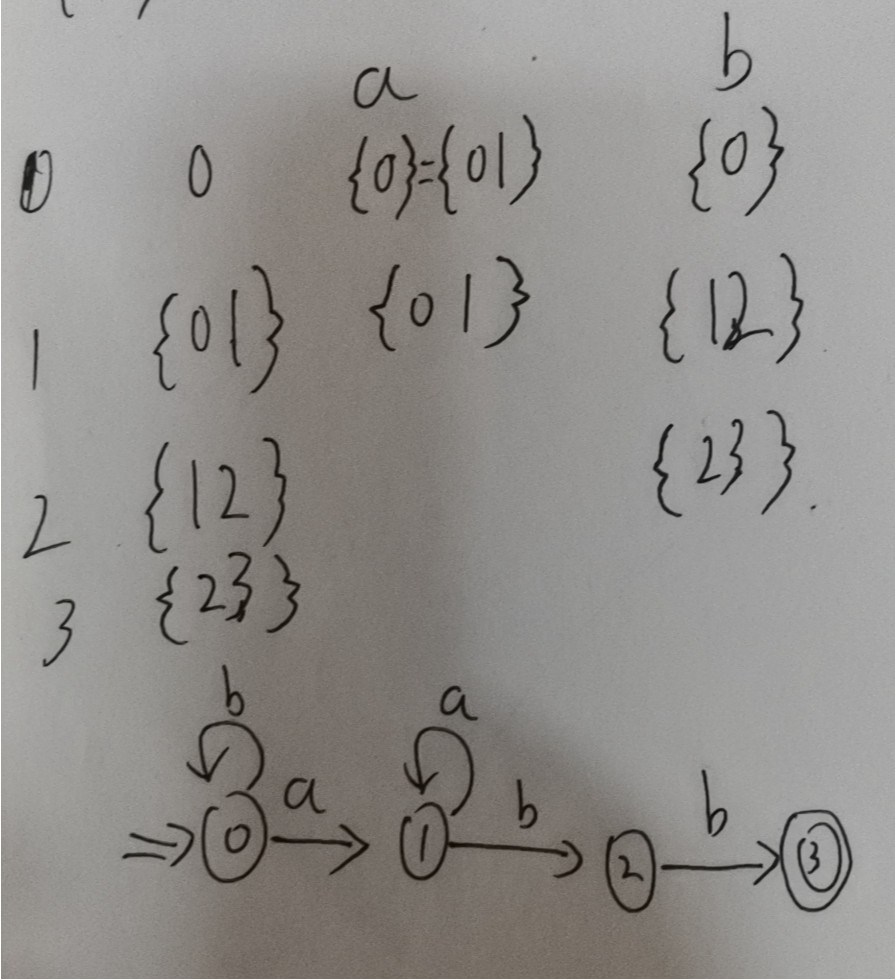 a b
0 0 {0}={01} {0}
1 {01} {01} {12}
2 {12} {23}
3 {23}
b a
a b b
0 1 2 3